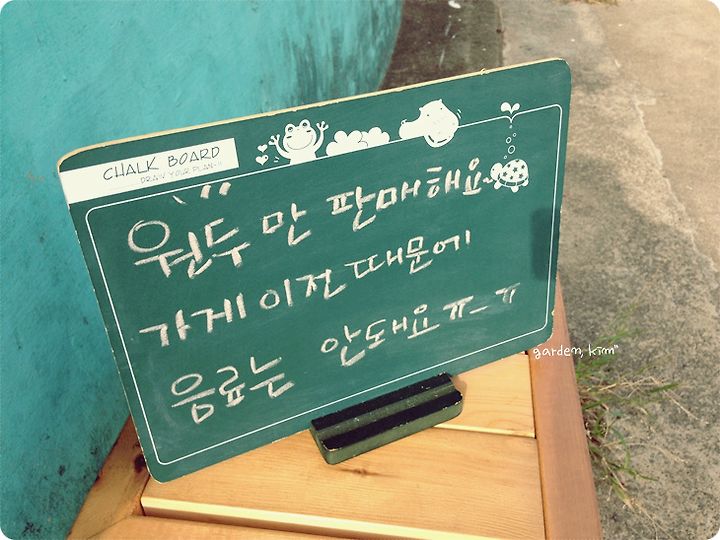 CHALK BOARD
DRAW YOUR PLAN~!!
원두만 판매해요~
가게 이전 때문에
음료는 안돼요 ㅠ-ㅠ
garden, kim"